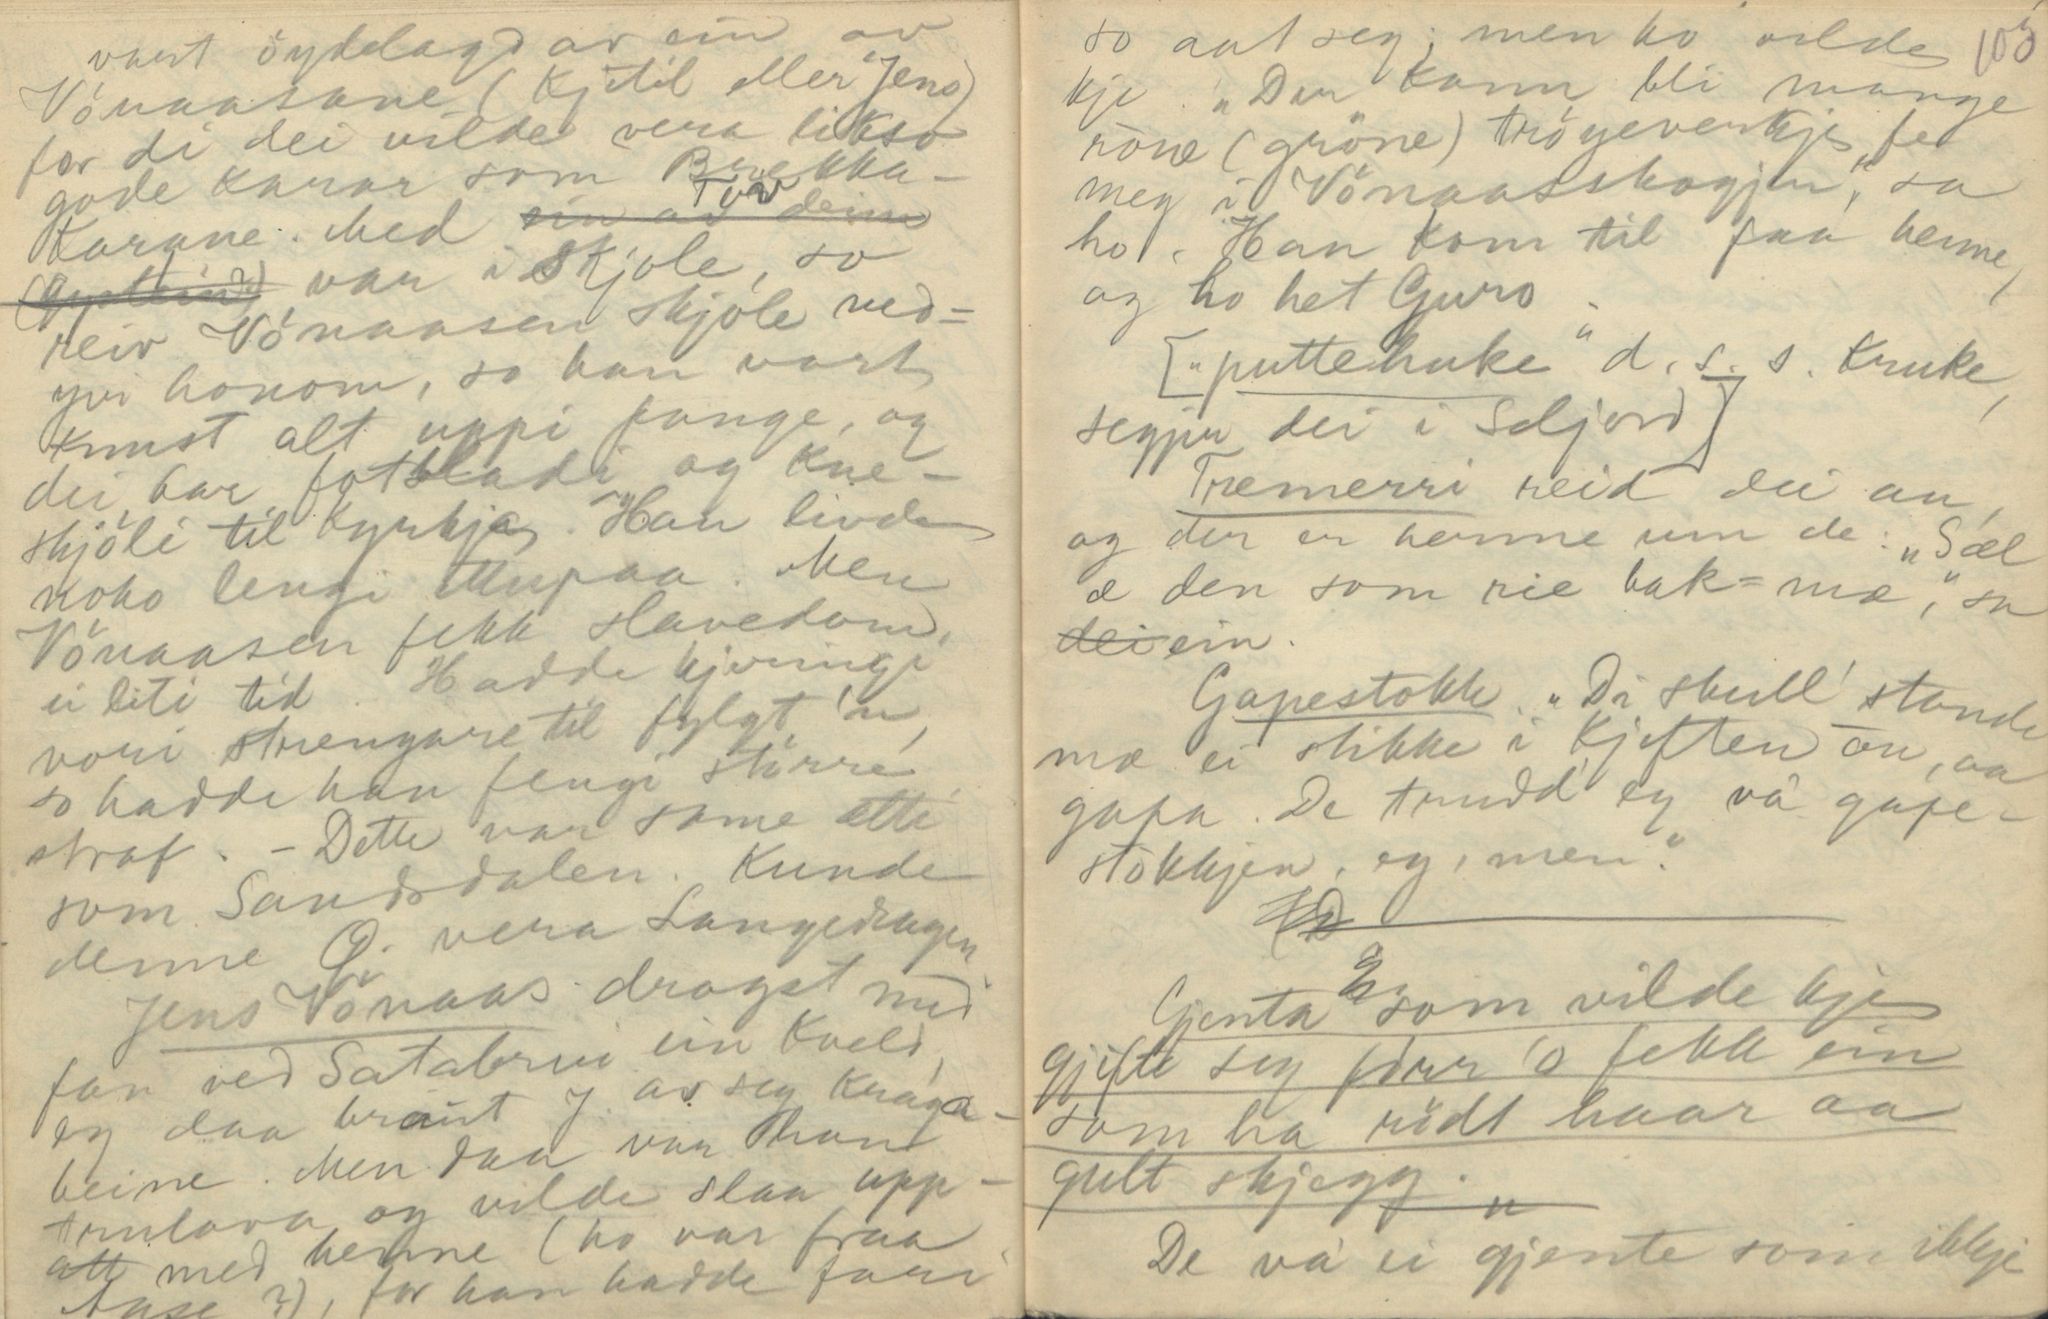 vart öydelagd av ein av
Vönaasane (Kjetil eller Jens)
for di dei vilde vera likso
gode karar som Brekka-
karane. Med ein av deim Tor
(Öystein?) var i Skjole, so
reiv Vönaasen skjole ned-
yvi honom, so han vart
knust alt uppi fange, og
dei bar fotbladi og kne-
skjöli til kyrkja. Han livde
noko lengi ettupaa. Men
Vönaasen fekk slavedom,
ei liti tid. Hadde kjeringi
vori strengare til fylgt 'n,
so hadde han fengi störri
straf. - Dette var same ætti
som Sandsdalen. Kunde
denne Ö. vera Langedragen
Jens Vönaas drogst med
fan ved Satabrui ein kveld,
og daa braut J. av seg kraga-
beine. Men daa var han
trulova og vilde slaa upp-
att med henne (ho var fraa
Aase?), for han hadde fari
105
so aat seg; men ho vilde
kje. "Der kann bli mange
röne (gröne) tröyeverkje fe
meg i Vönaasskogjen", sa
ho. Han kom til faa henne,
og ho het Guro.
["puttehuke" d. s. s. kruke,
segjer dei i Seljord]
Tremerri reid dei an,
og der er henne um de: "Sæl
æ den som rie bak-mæ", sa
dei ein.
Gapestokk. "Di skull' stande
mæ ei stikke i kjeften ön, aa
gapa. De trudd' eg vå gape-
stokkjen, eg, men."
Gjenta som vilde kje
gjifte seg förr 'o fekk ein
som ha rödt haar aa
gult skjegg.
De vå ei gjente som ikkje